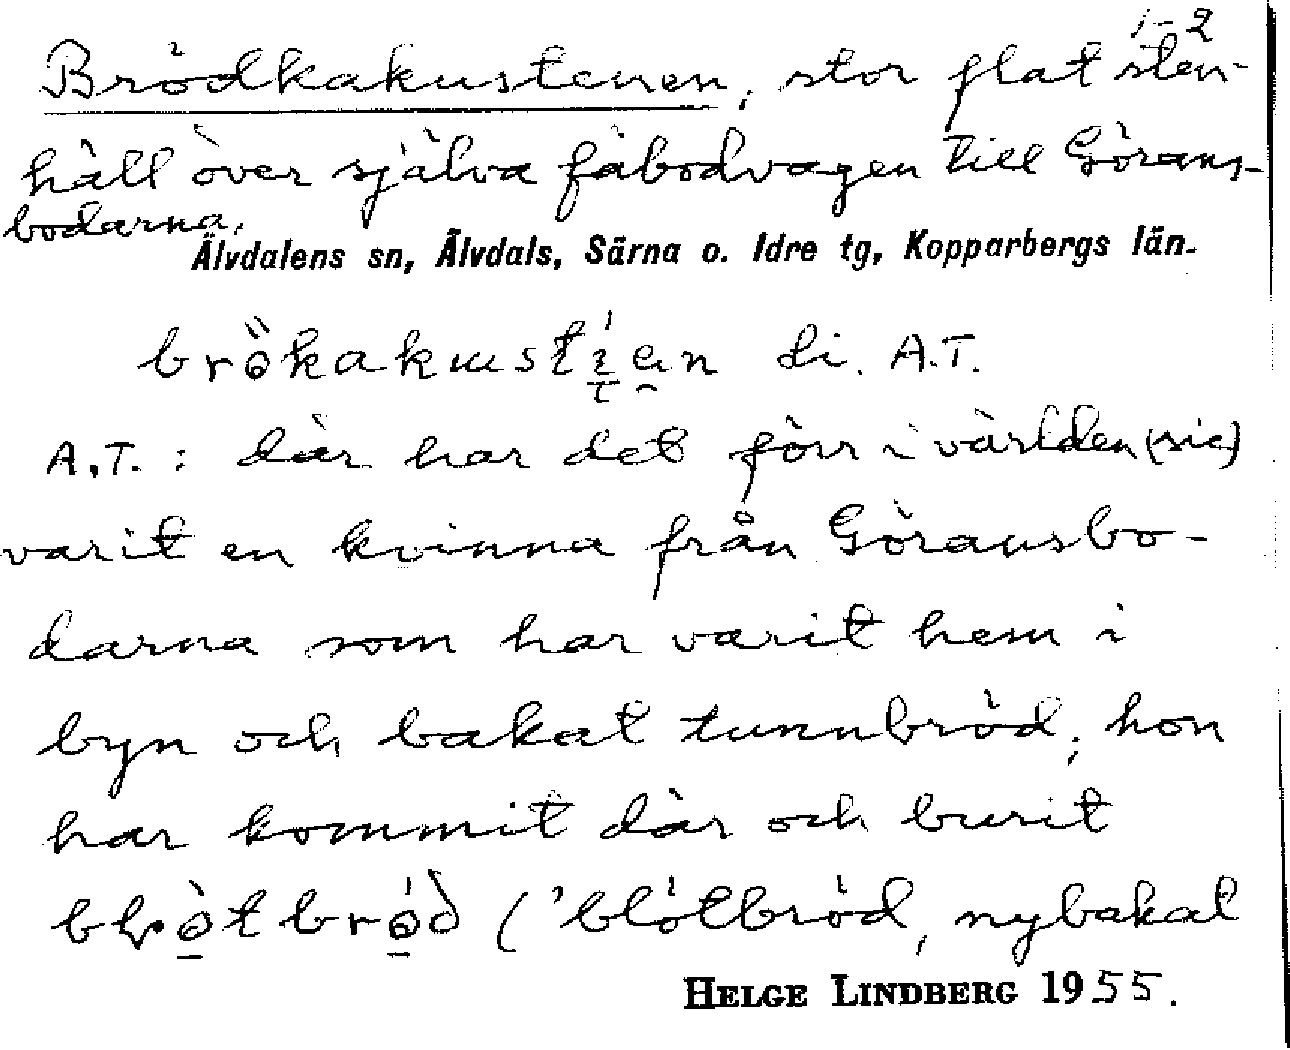 1-2
Brödkakustenen, stor flat sten-
häll över själva fäbodvägen till Görans-
bodarna.
Älvdalens sn, Älvdals, Särna o. Idre tg, Kopparbergs län.
di. A.T.
A.T.: där har det förr i världen (sic)
varit en kvinna från Göransbo-
darna som har varit hem i
byn och bakat tunnbröd, hon
har kommit där och burit
('blötbröd, nybakat
HELGE LINDBERG 1955.